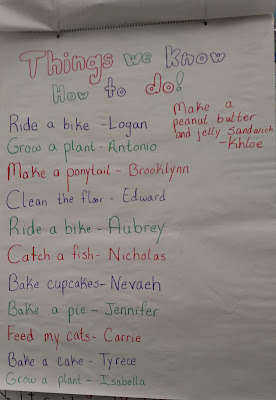 Things we Know
How to do!
Ride a bike - Logan
Grow a plant - Antonio
Make a ponytail - Brooklynn
Clean the floor - Edward
Ride a bike - Aubrey
Catch a fish - Nicholas
Bake cupcakes - Nevaeh
Bake a pie - Jennifer
Feed my cats - Carrie
Bake a cake - Tyrece
Grow a plant - Isabella
Make a
peanut butter
and jelly sandwich
- Khloe